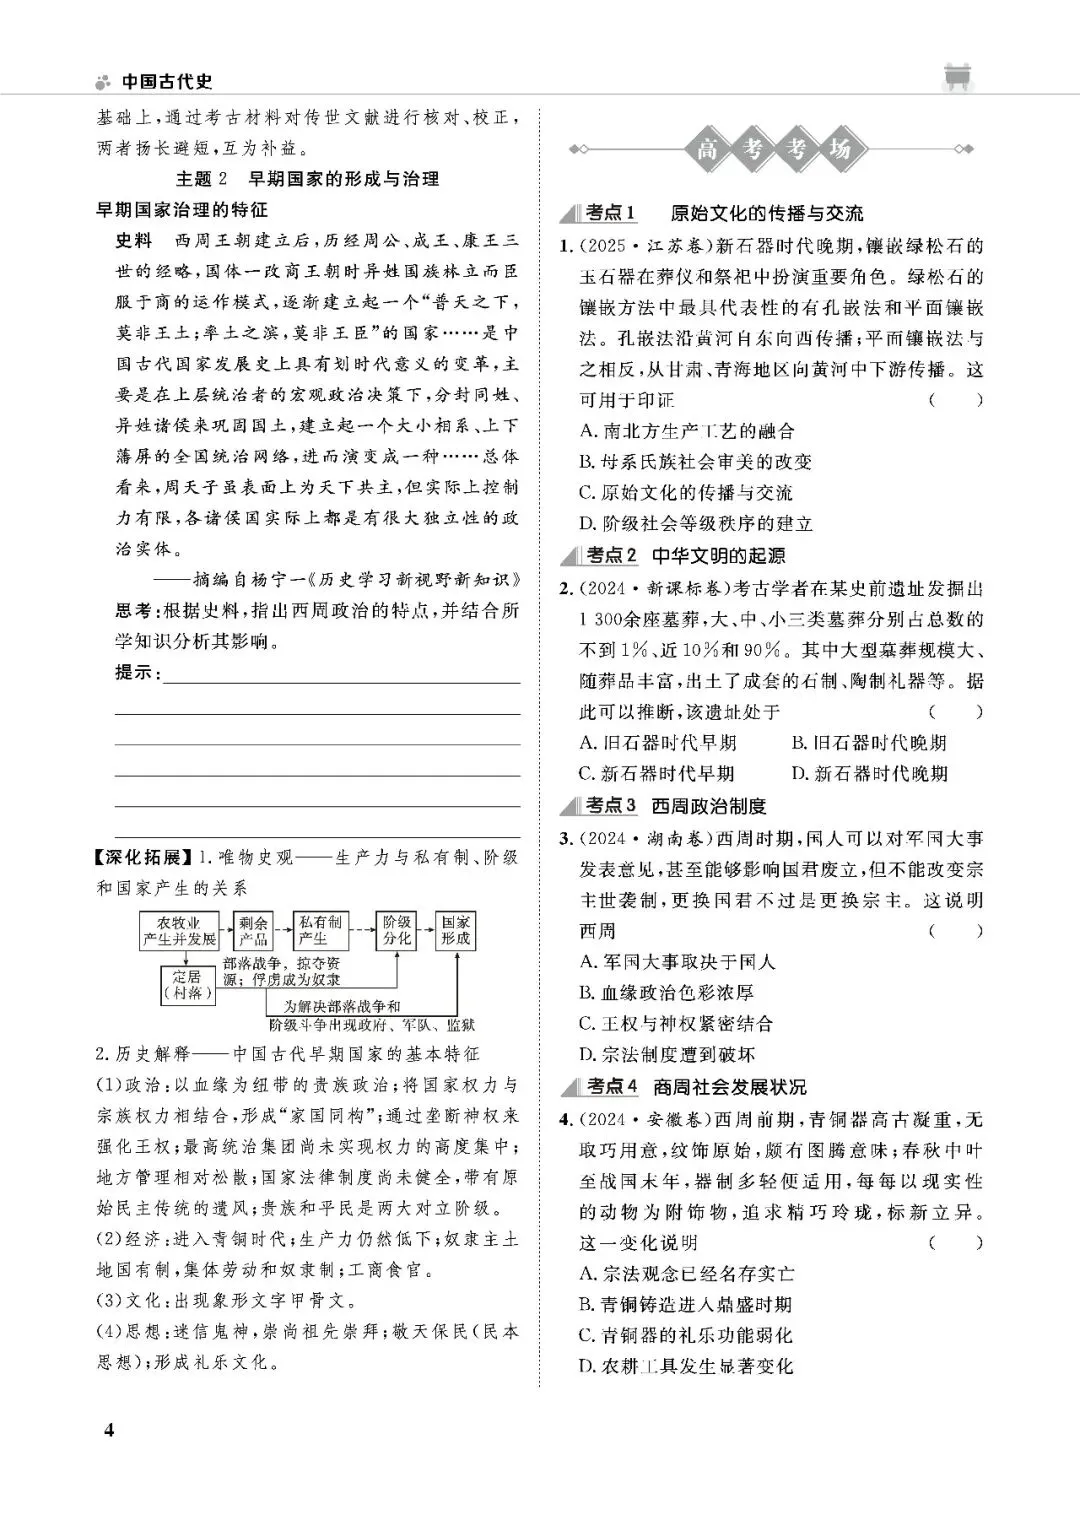 中国古代史
基础上,通过考古材料对传世文献进行核对、校正,
两者扬长避短,互为补益。
主题2 早期国家的形成与治理
早期国家治理的特征
史料 西周王朝建立后,历经周公、成王、康王三
世的经略,国体一改商王朝时异姓国族林立而臣
服于商的运作模式,逐渐建立起一个“普天之下,
莫非王土;率土之滨,莫非王臣”的国家……是中
国古代国家发展史上具有划时代意义的变革,主
要是在上层统治者的宏观政治决策下,分封同姓、
异姓诸侯来巩固国土,建立起一个大小相系、上下
藩屏的全国统治网络,进而演变成一种……总体
看来,周天子虽表面上为天下共主,但实际上控制
力有限,各诸侯国实际上都是有很大独立性的政
治实体。
——摘编自杨宁一《历史学习新视野新知识》
思考:根据史料,指出西周政治的特点,并结合所
学知识分析其影响。
提示:
【深化拓展】1. 唯物史观——生产力与私有制、阶级
和国家产生的关系
农牧业
产生并发展
剩余
产品
私有制
产生
阶级
分化
国家
形成
定居
(村落)
部落战争,掠夺资
源;俘虏成为奴隶
为解决部落战争和
阶级斗争出现政府、军队、监狱
2. 历史解释——中国古代早期国家的基本特征
(1)政治:以血缘为纽带的贵族政治;将国家权力与
宗族权力相结合,形成“家国同构”;通过垄断神权来
强化王权;最高统治集团尚未实现权力的高度集中;
地方管理相对松散;国家法律制度尚未健全,带有原
始民主传统的遗风;贵族和平民是两大对立阶级。
(2)经济:进入青铜时代;生产力仍然低下;奴隶主土
地国有制,集体劳动和奴隶制;工商食官。
(3)文化:出现象形文字甲骨文。
(4)思想:迷信鬼神,崇尚祖先崇拜;敬天保民(民本
思想);形成礼乐文化。
4
高考考场
考点1 原始文化的传播与交流
1. (2025·江苏卷)新石器时代晚期,镶嵌绿松石的
玉石器在葬仪和祭祀中扮演重要角色。绿松石的
镶嵌方法中最具代表性的有孔嵌法和平面镶嵌
法。孔嵌法沿黄河自东向西传播;平面镶嵌法与
之相反,从甘肃、青海地区向黄河中下游传播。这
可用于印证 ( )
A. 南北方生产工艺的融合
B. 母系氏族社会审美的改变
C. 原始文化的传播与交流
D. 阶级社会等级秩序的建立
考点2 中华文明的起源
2. (2024·新课标卷)考古学者在某史前遗址发掘出
1 300余座墓葬,大、中、小三类墓葬分别占总数的
不到1%、近10%和90%。其中大型墓葬规模大、
随葬品丰富,出土了成套的石制、陶制礼器等。据
此可以推断,该遗址处于 ( )
A. 旧石器时代早期 B. 旧石器时代晚期
C. 新石器时代早期 D. 新石器时代晚期
考点3 西周政治制度
3. (2024·湖南卷)西周时期,国人可以对军国大事
发表意见,甚至能够影响国君废立,但不能改变宗
主世袭制,更换国君不过是更换宗主。这说明
西周 ( )
A. 军国大事取决于国人
B. 血缘政治色彩浓厚
C. 王权与神权紧密结合
D. 宗法制度遭到破坏
考点4 商周社会发展状况
4. (2024·安徽卷)西周前期,青铜器高古凝重,无
取巧用意,纹饰原始,颇有图腾意味;春秋中叶
至战国末年,器制多轻便适用,每每以现实性
的动物为附饰物,追求精巧玲珑,标新立异。
这一变化说明 ( )
A. 宗法观念已经名存实亡
B. 青铜铸造进入鼎盛时期
C. 青铜器的礼乐功能弱化
D. 农耕工具发生显著变化